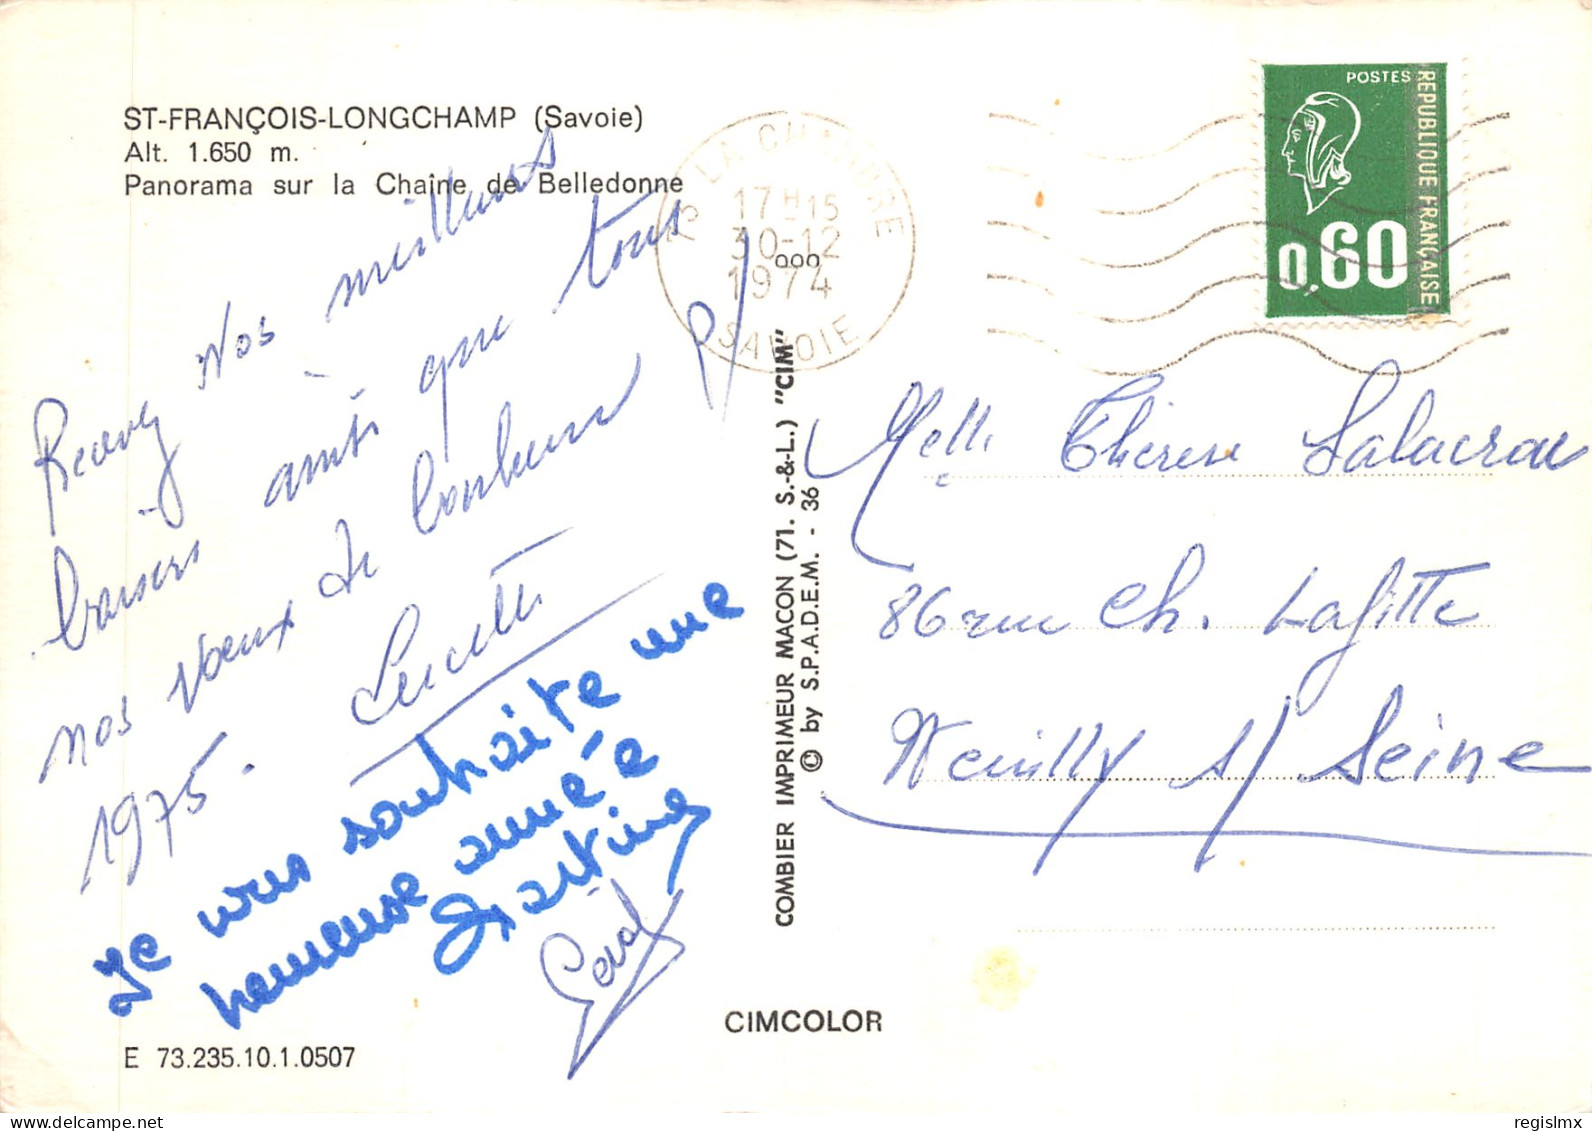 ST-FRANÇOIS-LONGCHAMP (Savoie)
Alt. 1.650 m.
Panorama sur la Chaîne de Belledonne
Recevez Nos meilleurs
baisers ainsi que tous
nos vœux de bonheur pr
1975.
Lucette
Je vous souhaite une
heureuse année
Martine
E 73.235.10.1.0507
CIMCOLOR
COMBIER IMPRIMEUR MACON (71. S.-&-L.) "CIM"
© by S.P.A.D.E.M. - 36
73 LA CHAMBRE
17H15
30-12
1974
SAVOIE
POSTES
REPUBLIQUE FRANÇAISE
0,60
Melle Thérèse Salacrou
86 rue Ch. Lafitte
Neuilly s/ Seine
regislmx